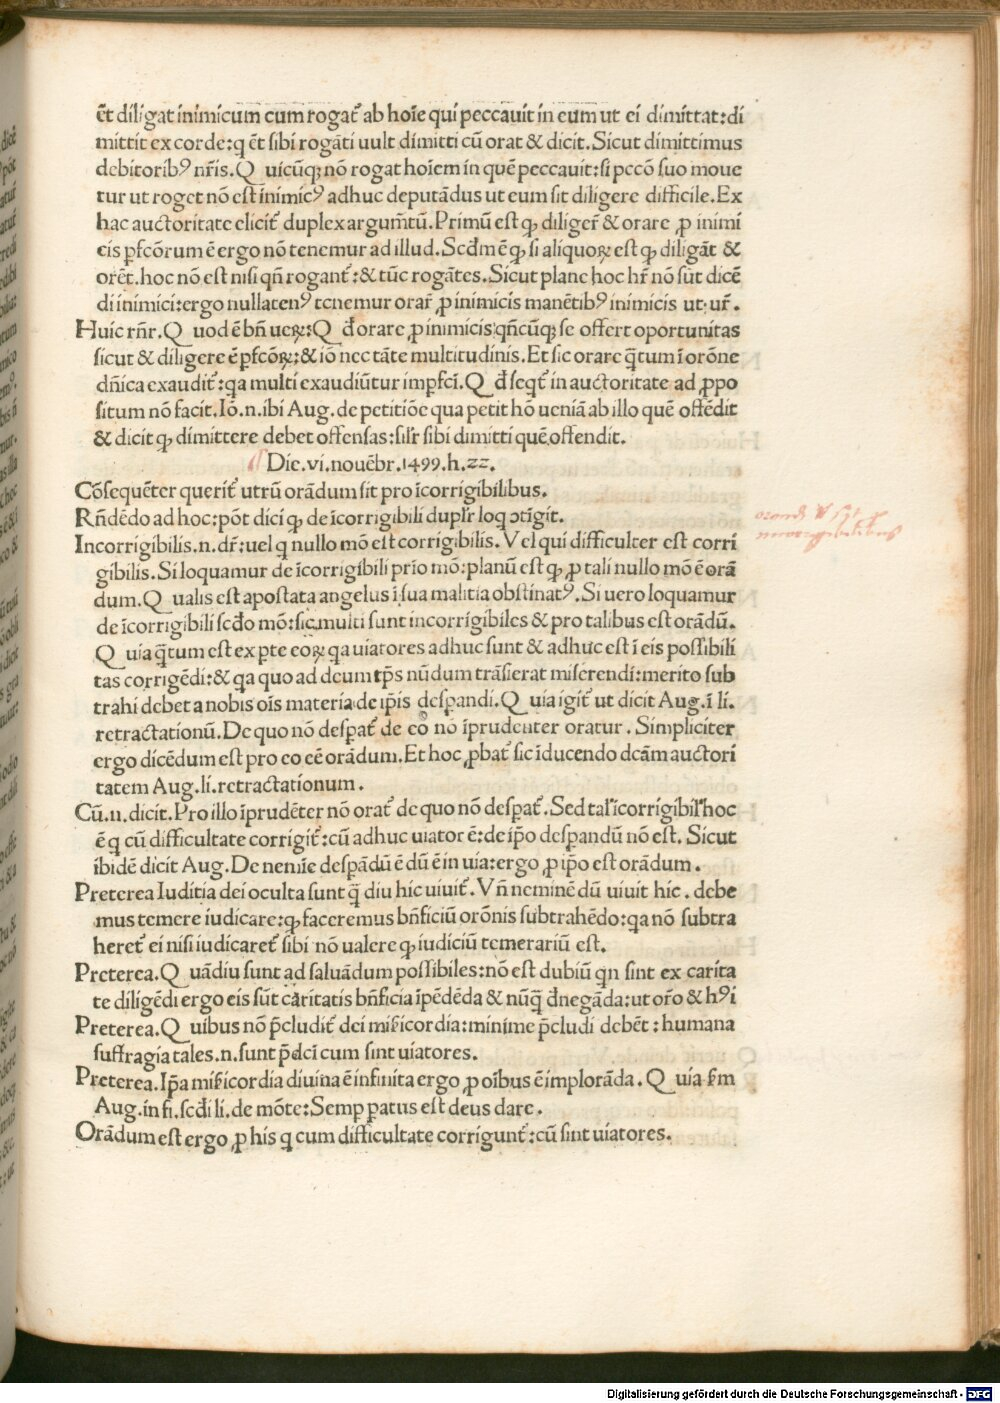 ēt diligat inimicum cum rogat᷑ ab hoīe qui peccauit in eum ut ei dimittat:di
mittit ex corde:q ēt sibi rogāti uult dimitti cū orat & dicit.Sicut dimittimus
debitoribꝰ nr̄is.Q uicūqꝫ nō rogat hoīem in quē peccauit:si pccō suo moue
tur ut roget nō est inimicꝰ adhuc deputādus ut eum sit diligere difficile.Ex
hac auctoritate elicit᷑ duplex argum̄tū.Primū est ꝙ diliger᷑ & orare ꝓ inimi
cis ꝑfcōrum ē ergo nō tenemur ad illud.Scd̄m ē ꝙ si aliquoꝝ est ꝙ diligāt &
orēt.hoc nō est nisi qn̄ rogant᷑:& tūc rogātes.Sicut plane hoc hr̄ nō sūt dicē
di inimici:ergo nullatenꝰ tenemur orar᷑ ꝓ inimicis manētibꝰ inimicis ut ur᷑.
Huic rn̄r.Q uod ē bn̄ ueꝝ:Q d̄ orare ꝓ inimicis:qn̄cūqꝫ se offert oportunitas
sicut & diligere ē ꝑfcōꝝ:& iō nec tāte multitudinis.Et sic orare q̄tum ī orōne
dn̄ica exaudit᷑:qa multi exaudiūtur imꝑfci.Q d̄ seqt᷑ in auctoritate ad ꝓpo
situm nō facit.Iō.n.ibi Aug.de petitiōe qua petit hō ueniā ab illo quē offēdit
& dicit ꝙ dimittere debet offensas:silr᷑ sibi dimitti quē offendit.
Die.vi.nouēbr.1499.h.22.
Cōsequēter querit᷑ utrū orādum sit pro īcorrigibilibus.
Rn̄dēdo ad hoc:pōt dici ꝙ de īcorrigibili duplr᷑ loq ↄtīgit.
Incorrigibilis.n.dr̄:uel q nullo mō est corrigibilis.Vel qui difficulter est corri
gibilis.Si loquamur de īcorrigibili prio mō:planū est ꝙ ꝓ tali nullo mō ē orā
dum.Q ualis est apostata angelus ī sua malitia obstinatꝰ.Si uero loquamur
de īcorrigibili scd̄o mō:sic multi sunt incorrigibiles & pro talibus est orādū.
Q uia q̄tum est ex ꝑte eoꝝ qa uiatores adhuc sunt & adhuc est ī eis possibili
tas corrigēdi:& qa quo ad deum tp̄s nūdum trāsierat miserendi:merito sub
trahi debet a nobis oīs materia de ip̄is desꝑandi.Q uia igit᷑ ut dicit Aug.ī li.
retractationū.De quo nō desꝑat᷑ de eo nō īprudenter oratur.Simpliciter
ergo dicēdum est pro eo eē orādum.Et hoc ꝓbat᷑ sic īducendo dcām auctori
tatem Aug.li.retractationum.
Cū.n.dicit.Pro illo īprudēter nō orat᷑ de quo nō desꝑat᷑.Sed tal᷑ īcorrigibil᷑ hoc
ē q cū difficultate corrigit᷑:cū adhuc uiator ē:de ip̄o desꝑandū nō est.Sicut
ibidē dicit Aug.De nemīe desꝑādū ē dū ē in uia:ergo ꝓ ip̄o est orādum.
Preterea Iuditia dei oculta sunt q̄ diu hic uiuit᷑.Vn̄ neminē dū uiuit hic.debe
mus temere iudicare:ꝙ faceremus bn̄ficiū orōnis subtrahēdo:qa nō subtra
heret᷑ ei nisi iudicaret᷑ sibi nō ualere ꝙ iudiciū temerariū est.
Preterea.Q uādiu sunt ad saluādum possibiles:nō est dubiū qn sint ex carita
te diligēdi ergo eis sūt caritatis bn̄ficia īpēdēda & nūq̄ d̄negāda:ut or̄o & hꝰi
Preterea.Q uibus nō p̄cludit᷑ dei mīs̄icordia:minime p̄cludi debēt:humana
suffragia tales.n.sunt p̄dc̄i cum sint uiatores.
Preterea.Ip̄a mīs̄icordia diuina ē infinita ergo ꝓ oībus ē implorāda.Q uia s̄m
Aug.in fi.scd̄i li.de mōte:Semꝑ patus est deus dare.
Orādum est ergo ꝓ his q cum difficultate corrigunt᷑:cū sint uiatores.